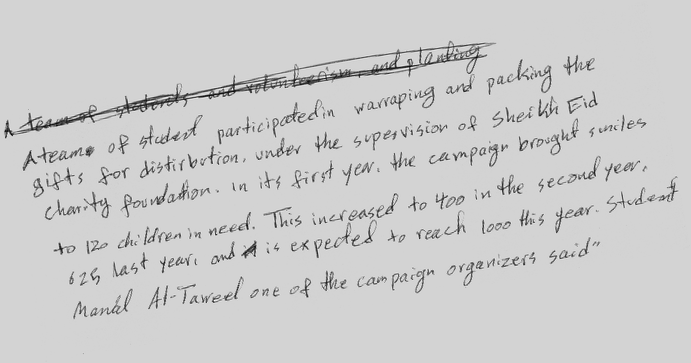 A team of students and volunteerism, and planting
A team of studest participatedin warraping and packing the
gifts for distirbution, under the supervision of Sheikh Eid
charity foundation. in its first year, the campaign brought smiles
to 120 children in need. This increased to 400 in the second year,
625 last year, and is expected to reach 1000 this year. Student
Manal Al-Taweel one of the campaign organizers said"